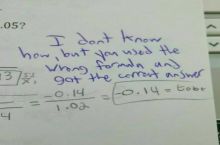 .05?
I dont know
how, but you used the
wrong formula and
got the correct answer
13
-0.14
= = -0.14 =
1.02